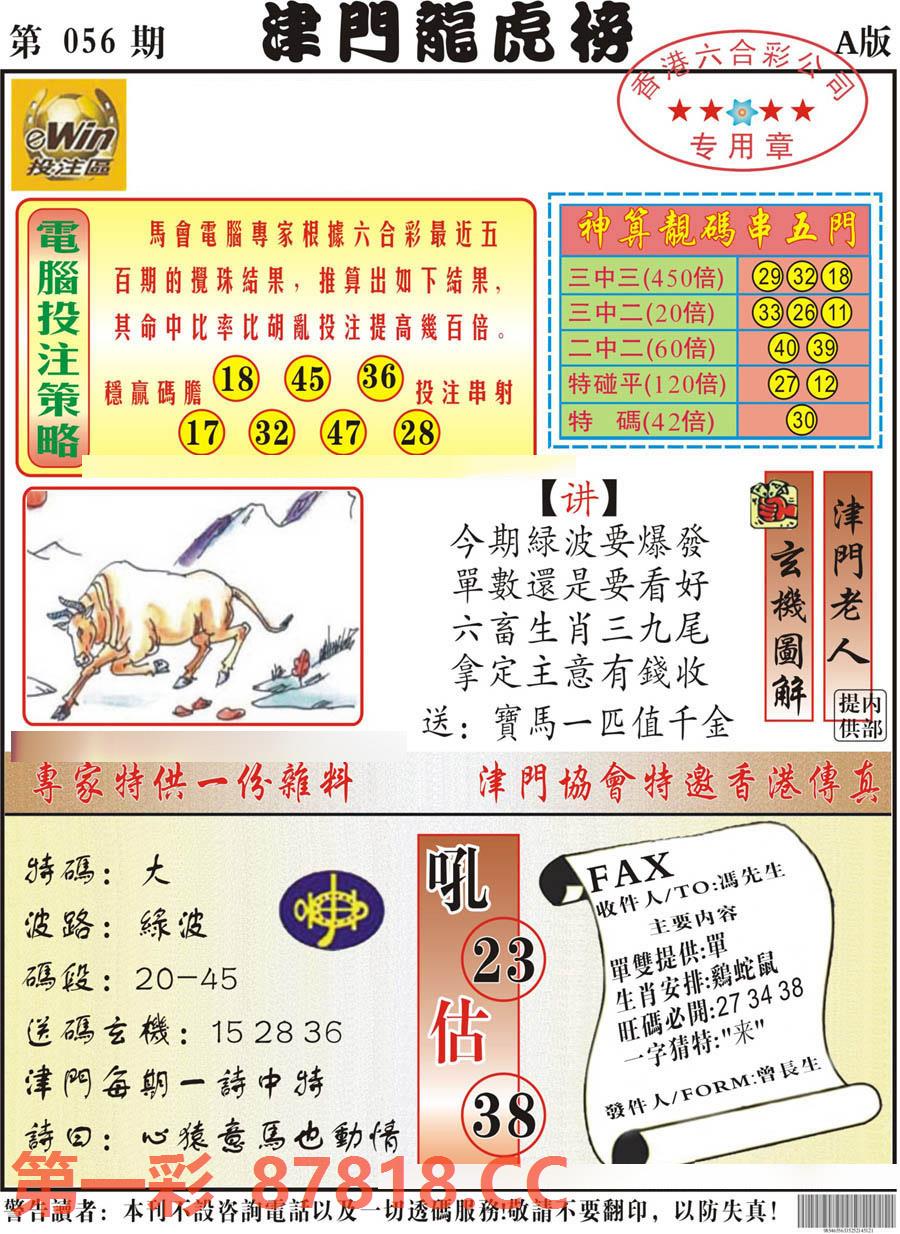 第 056 期
津門龍虎榜
A版
香港六合彩公司
专用章
eWin
投注區
電腦投注策略
馬會電腦專家根據六合彩最近五
百期的攪珠結果，推算出如下結果，
其命中比率比胡亂投注提高幾百倍。
穩贏碼膽 18 45 36 投注串射
17 32 47 28
神算靚碼串五門
三中三(450倍) 29 32 18
三中二(20倍) 33 26 11
二中二(60倍) 40 39
特碰平(120倍) 27 12
特 碼(42倍) 30
【讲】
今期緑波要爆發
單數還是要看好
六畜生肖三九尾
拿定主意有錢收
送：寶馬一匹值千金
玄機圖解
津門老人
内部提供
專家特供一份雜料
津門協會特邀香港傳真
特碼：大
波路：綠波
碼段：20-45
送碼玄機：15 28 36
津門每期一詩中特
詩曰：心猿意馬也動情
吼
23
估
38
FAX
收件人/TO:馮先生
主要内容
單雙提供:單
生肖安排:鷄蛇鼠
旺碼必開:27 34 38
一字猜特:"来"
發件人/FORM:曾長生
第一彩 87818.CC
警告讀者：本刊不設咨詢電話以及一切透碼服務!敬請不要翻印，以防失真!